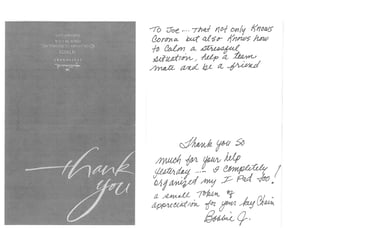 thank
you
To Joe.... That not only knows
Corona but also knows how
to Calm a stressful
situation, help a team
mate and be a friend
Thank you so
much for your help
yesterday .... I completely
organized my I Pad too!
a small Token of
appreciation for your key Chain